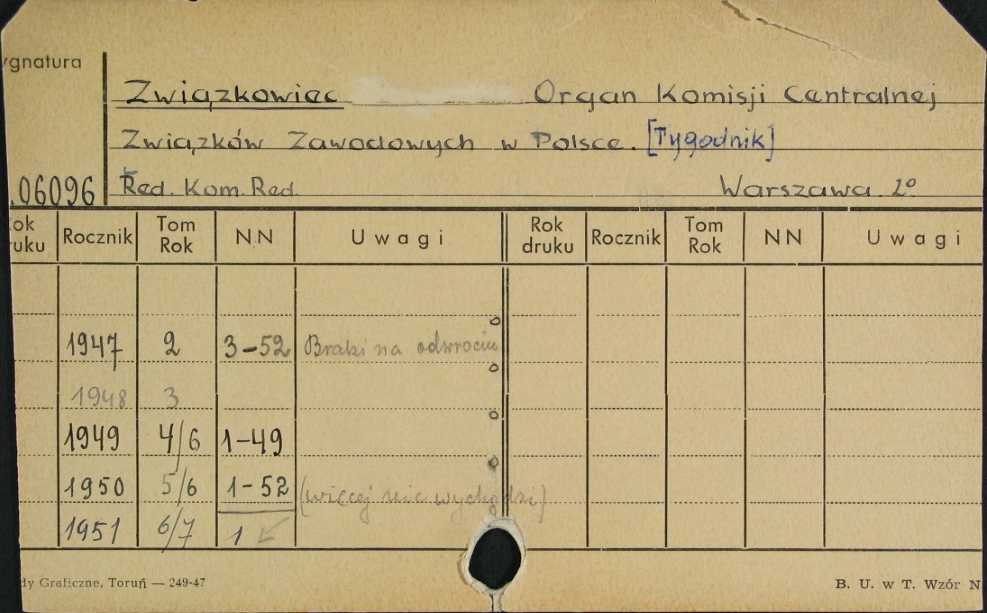 ygnatura
Związkowiec Organ Komisji Centralnej
Związków Zawodowych w Polsce. [Tygodnik]
06096 Red. Kom. Red. Warszawa. 2º
ok ruku Rocznik Tom Rok NN Uwagi Rok druku Rocznik Tom Rok NN Uwagi
1947 2 3-52 Braki na odwrociu
1948 3
1949 4/6 1-49
1950 5/6 1-52 (więcej nie wychodzi)
1951 6/7 1
dy Graficzne, Toruń — 249-47 B. U. w T. Wzór N